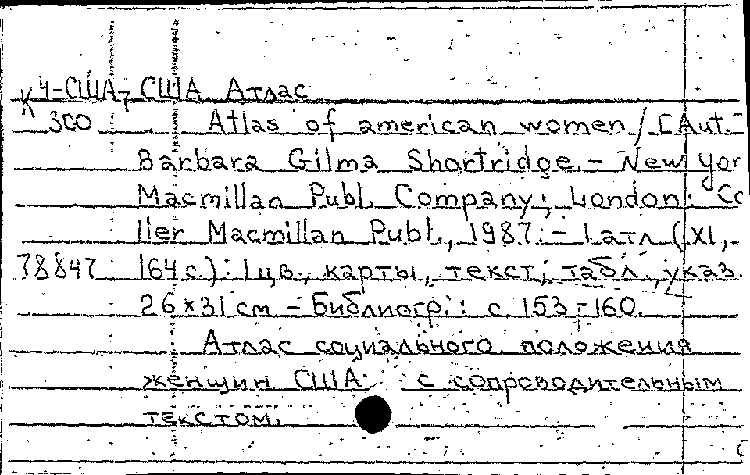 К 4-США-7 США Атлас
300 Atlas of american women / [Aut.-
Barbara Gilma Shortridge. - New Yor
Macmillan Publ. Company; London: Co
llier Macmillan Publ., 1987. - 1 атл (XI,
78847 164 с.): цв., карты, текст, табл., указ.
26×31 см - Библиогр.: с. 153-160.
Атлас социального положения
женщин США с сопроводительным
текстом.